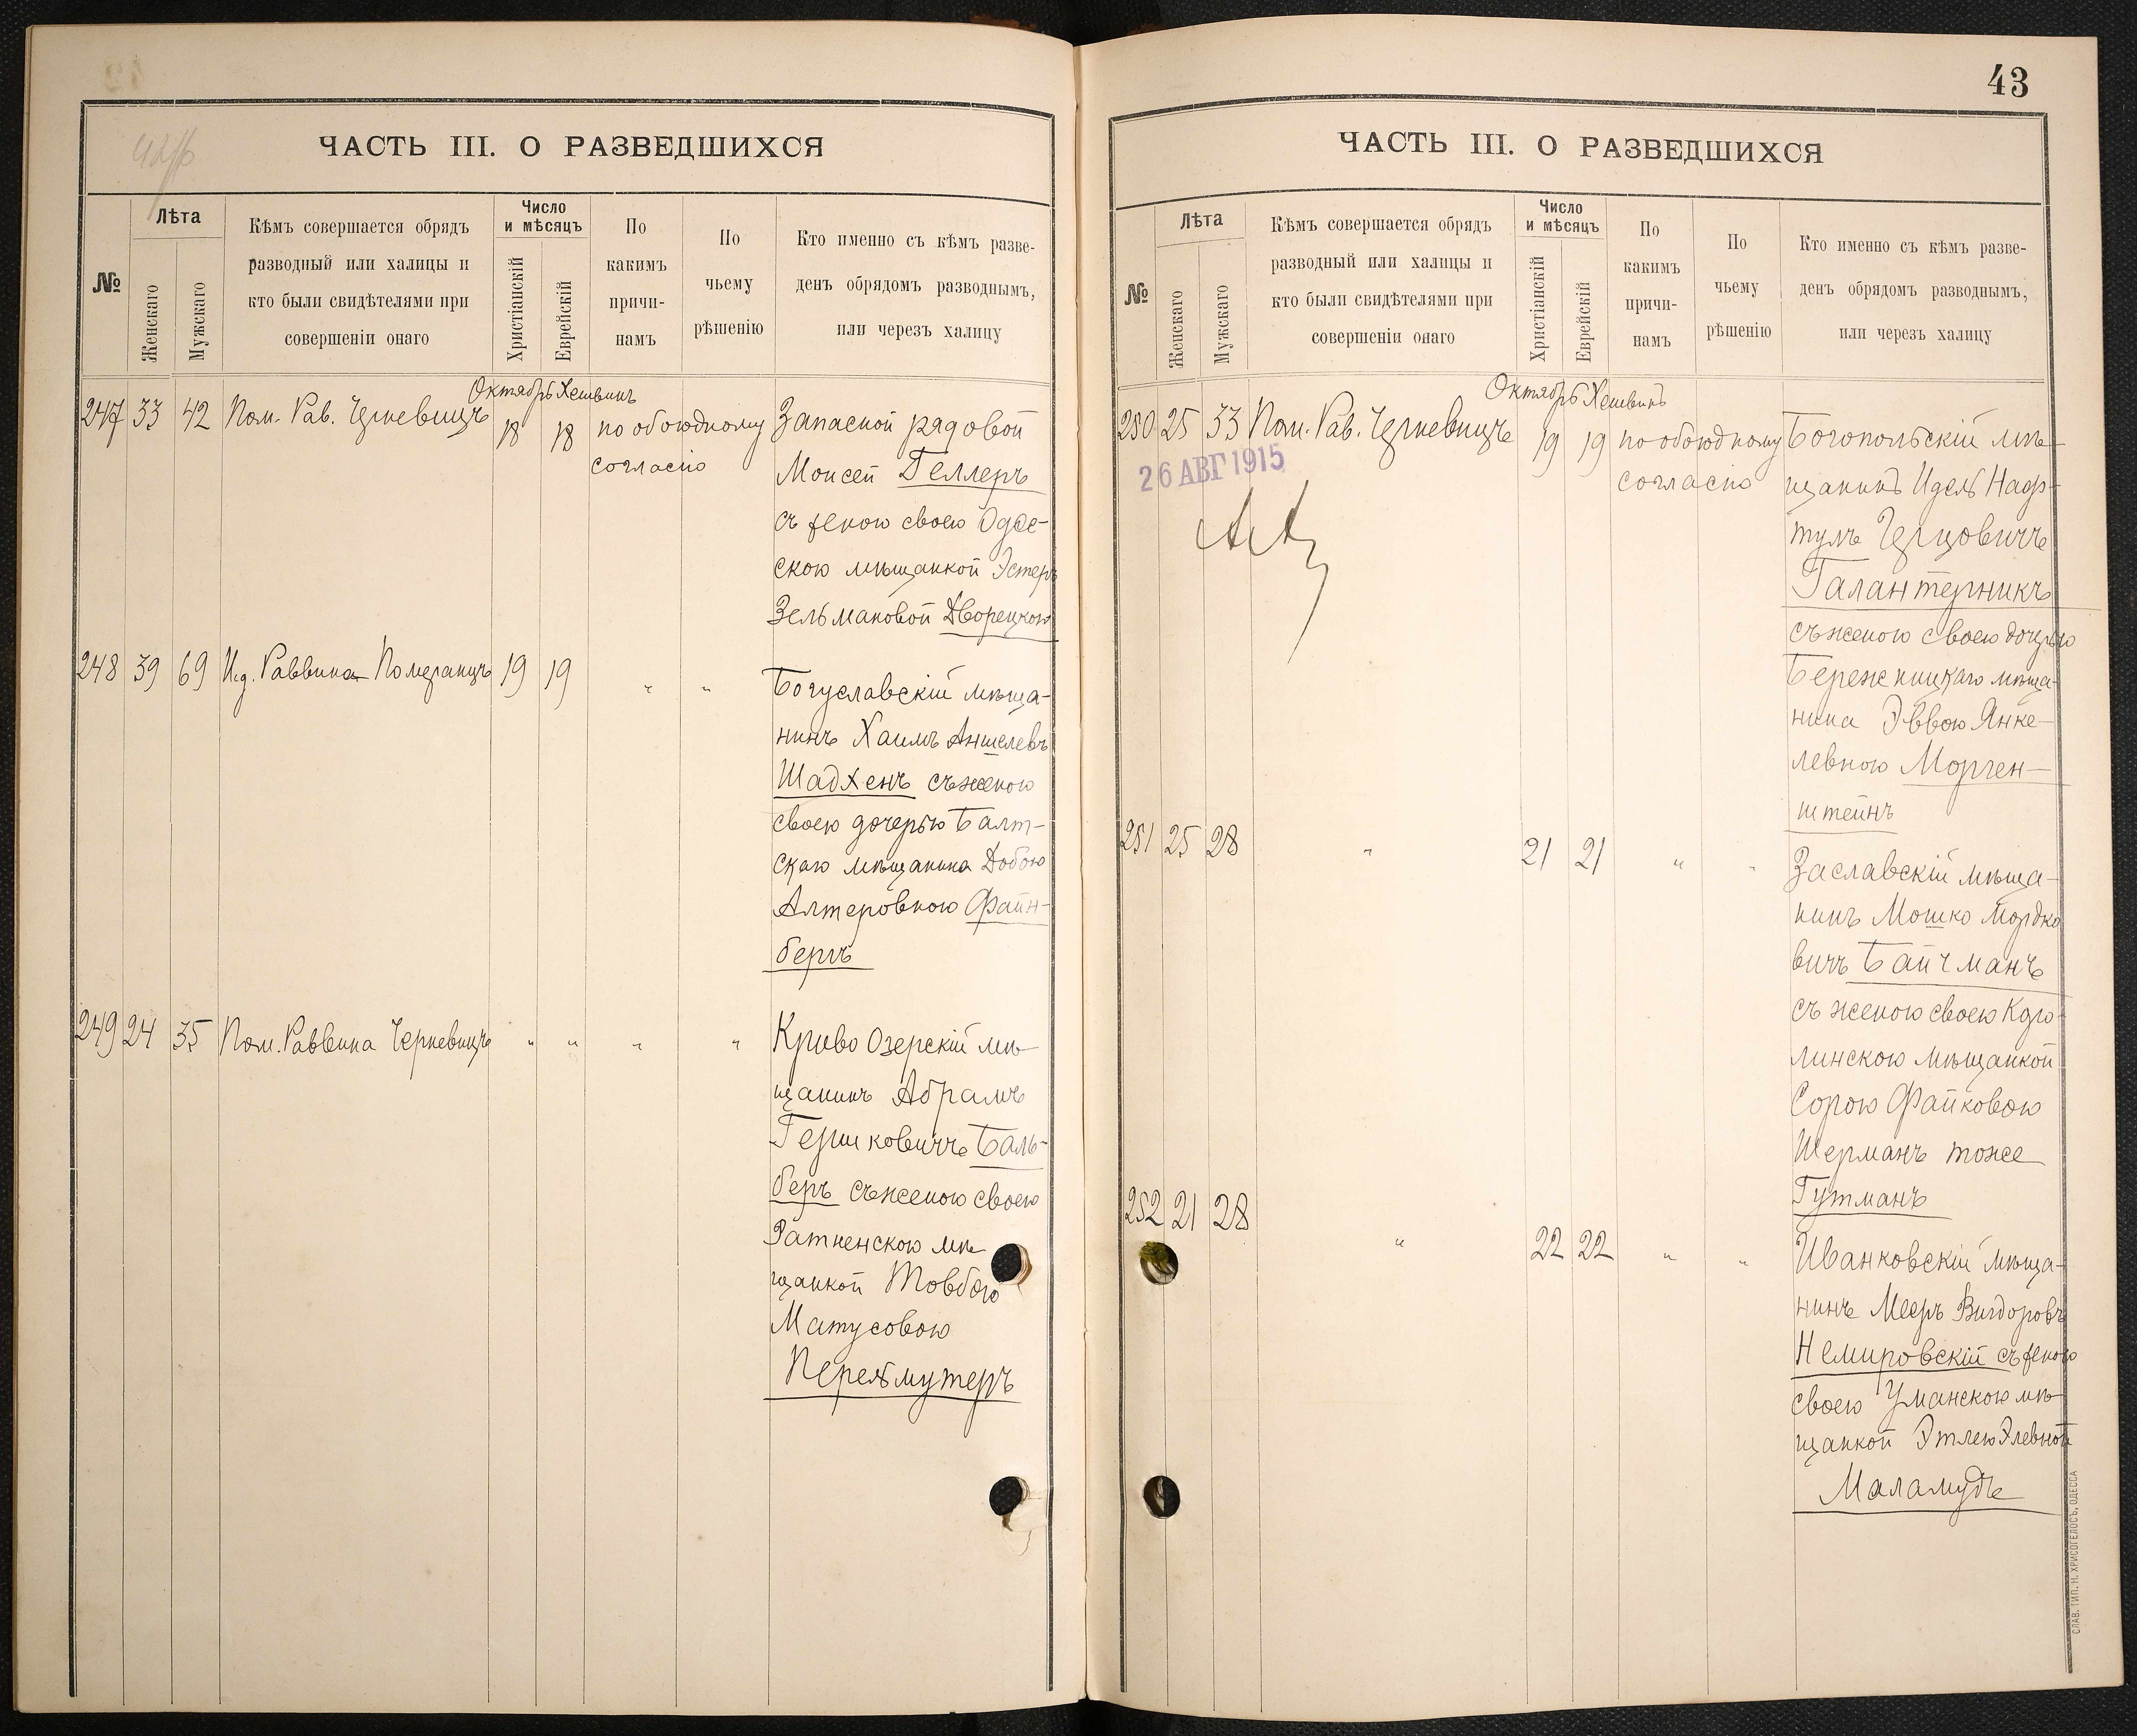 ЧАСТЬ III. О РАЗВЕДШИХСЯ
№
Лѣта
Женскаго
Мужскаго
Кѣмъ совершается обрядъ
разводный или халицы и
кто были свидѣтелями при
совершеніи онаго
Число
и мѣсяцъ
Христіанскій
Еврейскій
По
какимъ
причи-
намъ
По
чьему
рѣшенію
Кто именно съ кѣмъ разве-
денъ обрядомъ разводнымъ,
или черезъ халицу
Октябрь Хешвинъ
247 33 42 Пом. Рав. Черкевицъ 18 18 по обоюдному
согласію
Запасной рядовой
Моисей Геллеръ
съ женою своею Одес-
скою мѣщанкой Эстеръ
Зельмановой Дворецкою
248 39 69 И.д. Раввина Померанцъ 19 19 " "
Богуславскій мѣща-
нинъ Хаимъ Аншелевъ
Шадхенъ съ женою
своею дочерью Балт-
скаго мѣщанина Добою
Алтеровною Файн-
бергъ
249 24 35 Пом. Раввина Черкевицъ " " " "
Криво Озерскій мѣ-
щанинъ Абрамъ
Гершковичъ Баль-
беръ съ женою своею
Ратненскою мѣ-
щанкой Товбою
Матусовою
Перельмутеръ
43
ЧАСТЬ III. О РАЗВЕДШИХСЯ
№
Лѣта
Женскаго
Мужскаго
Кѣмъ совершается обрядъ
разводный или халицы и
кто были свидѣтелями при
совершеніи онаго
Число
и мѣсяцъ
Христіанскій
Еврейскій
По
какимъ
причи-
намъ
По
чьему
рѣшенію
Кто именно съ кѣмъ разве-
денъ обрядомъ разводнымъ,
или черезъ халицу
Октябрь Хешвинъ
250 25 33 Пом. Рав. Черкевицъ 19 19 по обоюдному
согласію
26 АВГ 1915
Богопольскій мѣ-
щанинъ Идель Наф-
тулъ Герцовичъ
Галантерникъ
съ женою своею дочерью
Бережницкаго мѣща-
нина Эввою Янке-
левною Морген-
штейнъ
251 25 28 " 21 21 " "
Заславскій мѣща-
нинъ Мошко Мордко
вичъ Байчманъ
съ женою своею
линскою мѣщанкой
Сорою Файковою
Шерманъ тоже
Гутманъ
252 21 28 " 22 22 " "
Иванковскій мѣща-
нинъ Мееръ Вигдоровъ
Немировскій съ женою
своею Уманскою мѣ-
щанкой Этлею Элевной
Маламудъ
СЛАВ. ТИП. Н. ХРИСОГЕЛОСЪ, ОДЕССА